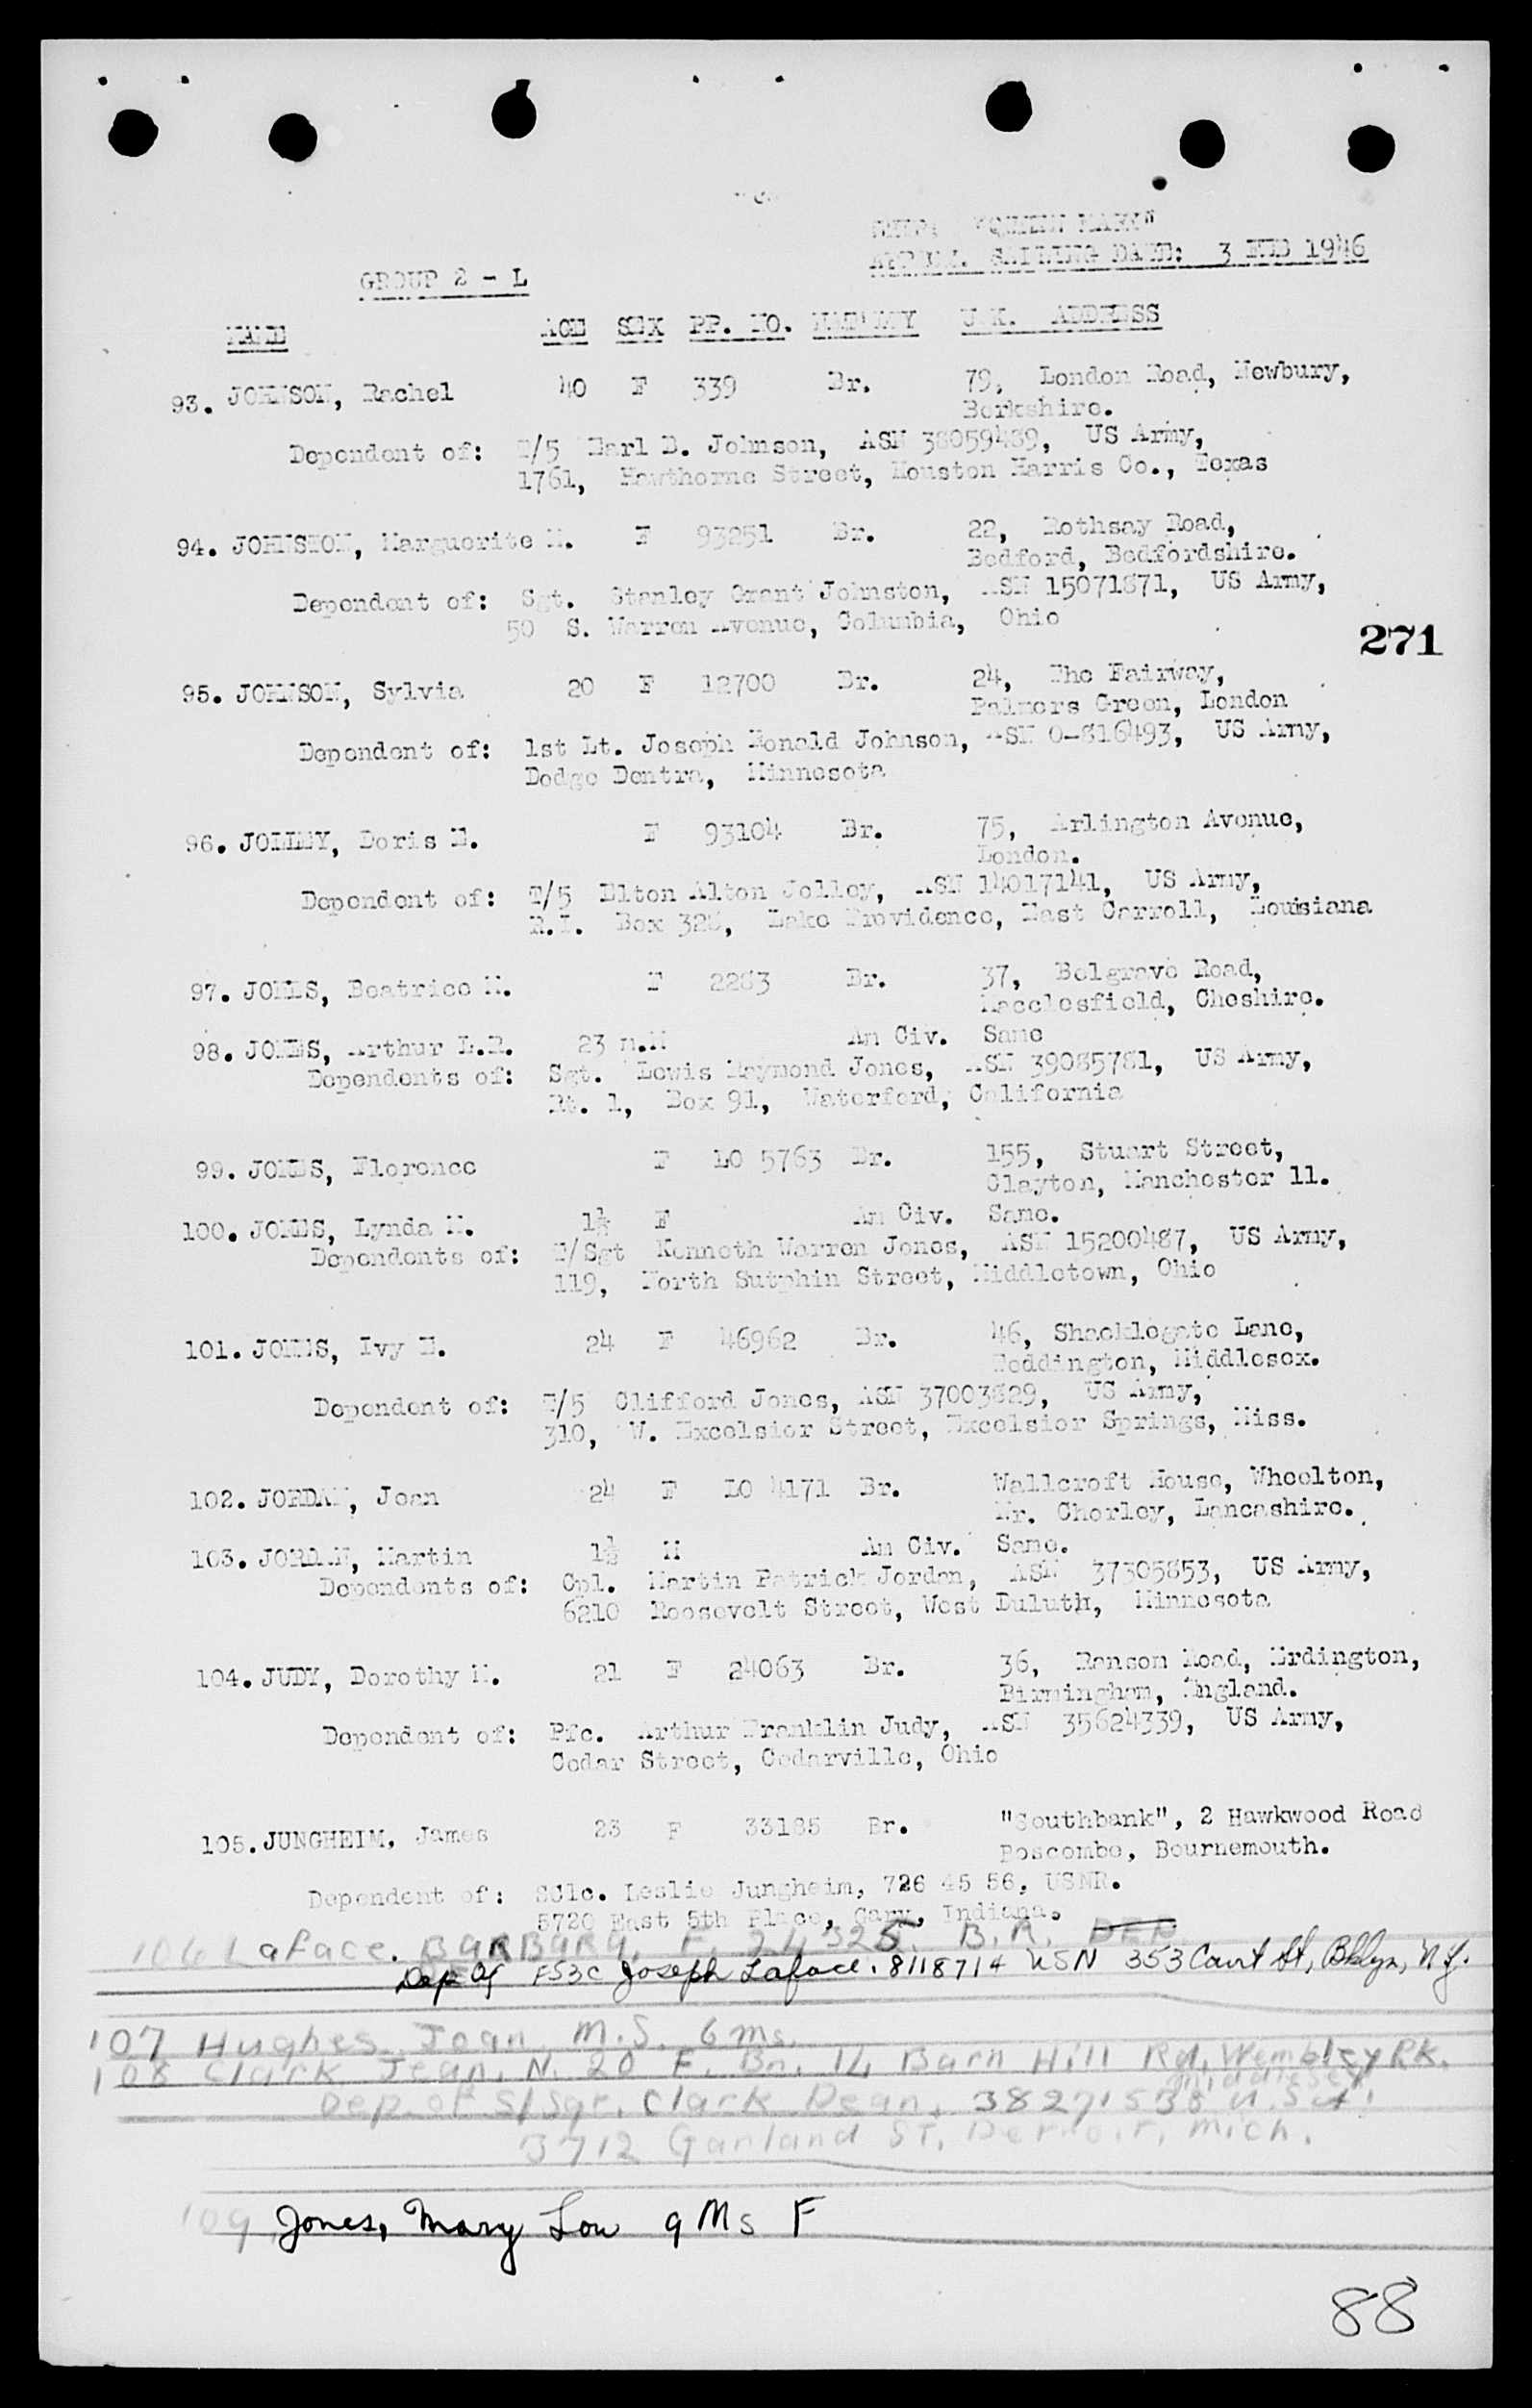 SHIP: "QUEEN MARY"
APPROX. SAILING DATE: 3 FEB 1946
GROUP 2 - L
NAME AGE SEX PP. NO. NAT'LTY U.K. ADDRESS
93. JOHNSON, Rachel 40 F 339 Br. 79, London Road, Newbury,
Berkshire.
Dependent of: T/5 Earl B. Johnson, ASN 38059489, US Army,
1761, Hawthorne Street, Houston Harris Co., Texas
94. JOHNSTON, Marguerite M. F 93251 Br. 22, Rothsay Road,
Bedford, Bedfordshire.
Dependent of: Sgt. Stanley Grant Johnston, ASN 15071871, US Army,
50 S. Warren Avenue, Columbia, Ohio
271
95. JOHNSON, Sylvia 20 F 12700 Br. 24, The Fairway,
Palmers Green, London
Dependent of: 1st Lt. Joseph Ronald Johnson, ASN O-816493, US Army,
Dodge Dentra, Minnesota
96. JOLLEY, Doris E. F 93104 Br. 75, Arlington Avenue,
London.
Dependent of: T/5 Elton Alton Jolley, ASN 14017141, US Army,
R.I. Box 328, Lake Providence, East Carroll, Louisiana
97. JONES, Beatrice M. F 2283 Br. 37, Belgrave Road,
Macclesfield, Cheshire.
98. JONES, Arthur L.R. 23 m.M Am Civ. Same
Dependents of: Sgt. Lewis Raymond Jones, ASN 39085781, US Army,
Rt. 1, Box 91, Waterford, California
99. JONES, Florence F LO 5763 Br. 155, Stuart Street,
Clayton, Manchester 11.
100. JONES, Lynda M. 1½ F Am Civ. Same.
Dependents of: T/Sgt Kenneth Warren Jones, ASN 15200487, US Army,
119, North Sutphin Street, Middletown, Ohio
101. JONES, Ivy E. 24 F 46962 Br. 46, Shacklegate Lane,
Teddington, Middlesex.
Dependent of: T/5 Clifford Jones, ASN 37003829, US Army,
310, W. Excelsior Street, Excelsior Springs, Miss.
102. JORDAN, Joan 24 F LO 4171 Br. Wallcroft House, Wheelton,
Nr. Chorley, Lancashire.
103. JORDAN, Martin 1½ M Am Civ. Same.
Dependents of: Cpl. Martin Patrick Jordan, ASN 37305853, US Army,
6210 Roosevelt Street, West Duluth, Minnesota
104. JUDY, Dorothy M. 21 F 24063 Br. 36, Ranson Road, Erdington,
Birmingham, England.
Dependent of: Pfc. Arthur Franklin Judy, ASN 35624339, US Army,
Cedar Street, Cedarville, Ohio
105. JUNGHEIM, James 23 F 33185 Br. "Southbank", 2 Hawkwood Road
Boscombe, Bournemouth.
Dependent of: SC1c. Leslie Jungheim, 726 45 56, USNR.
5720 East 5th Place, Gary, Indiana.
106 Laface. BARBARA. F. 24325. B.R. DEP.
Dep of FS3C Joseph Laface. 8118714 USN 353 Court St, Bklyn, N.Y.
107 Hughes Joan M.S. 6 ms.
108 Clark Jean. N. 20 F. Br. 14 Barn Hill Rd. Wembley Pk.
Middlesex
Dep of S/Sgt. Clark Dean. 38271538 U.S.A.
3712 Garland ST. Detroit, Mich.
109 Jones, Mary Lou 9 Ms F
88